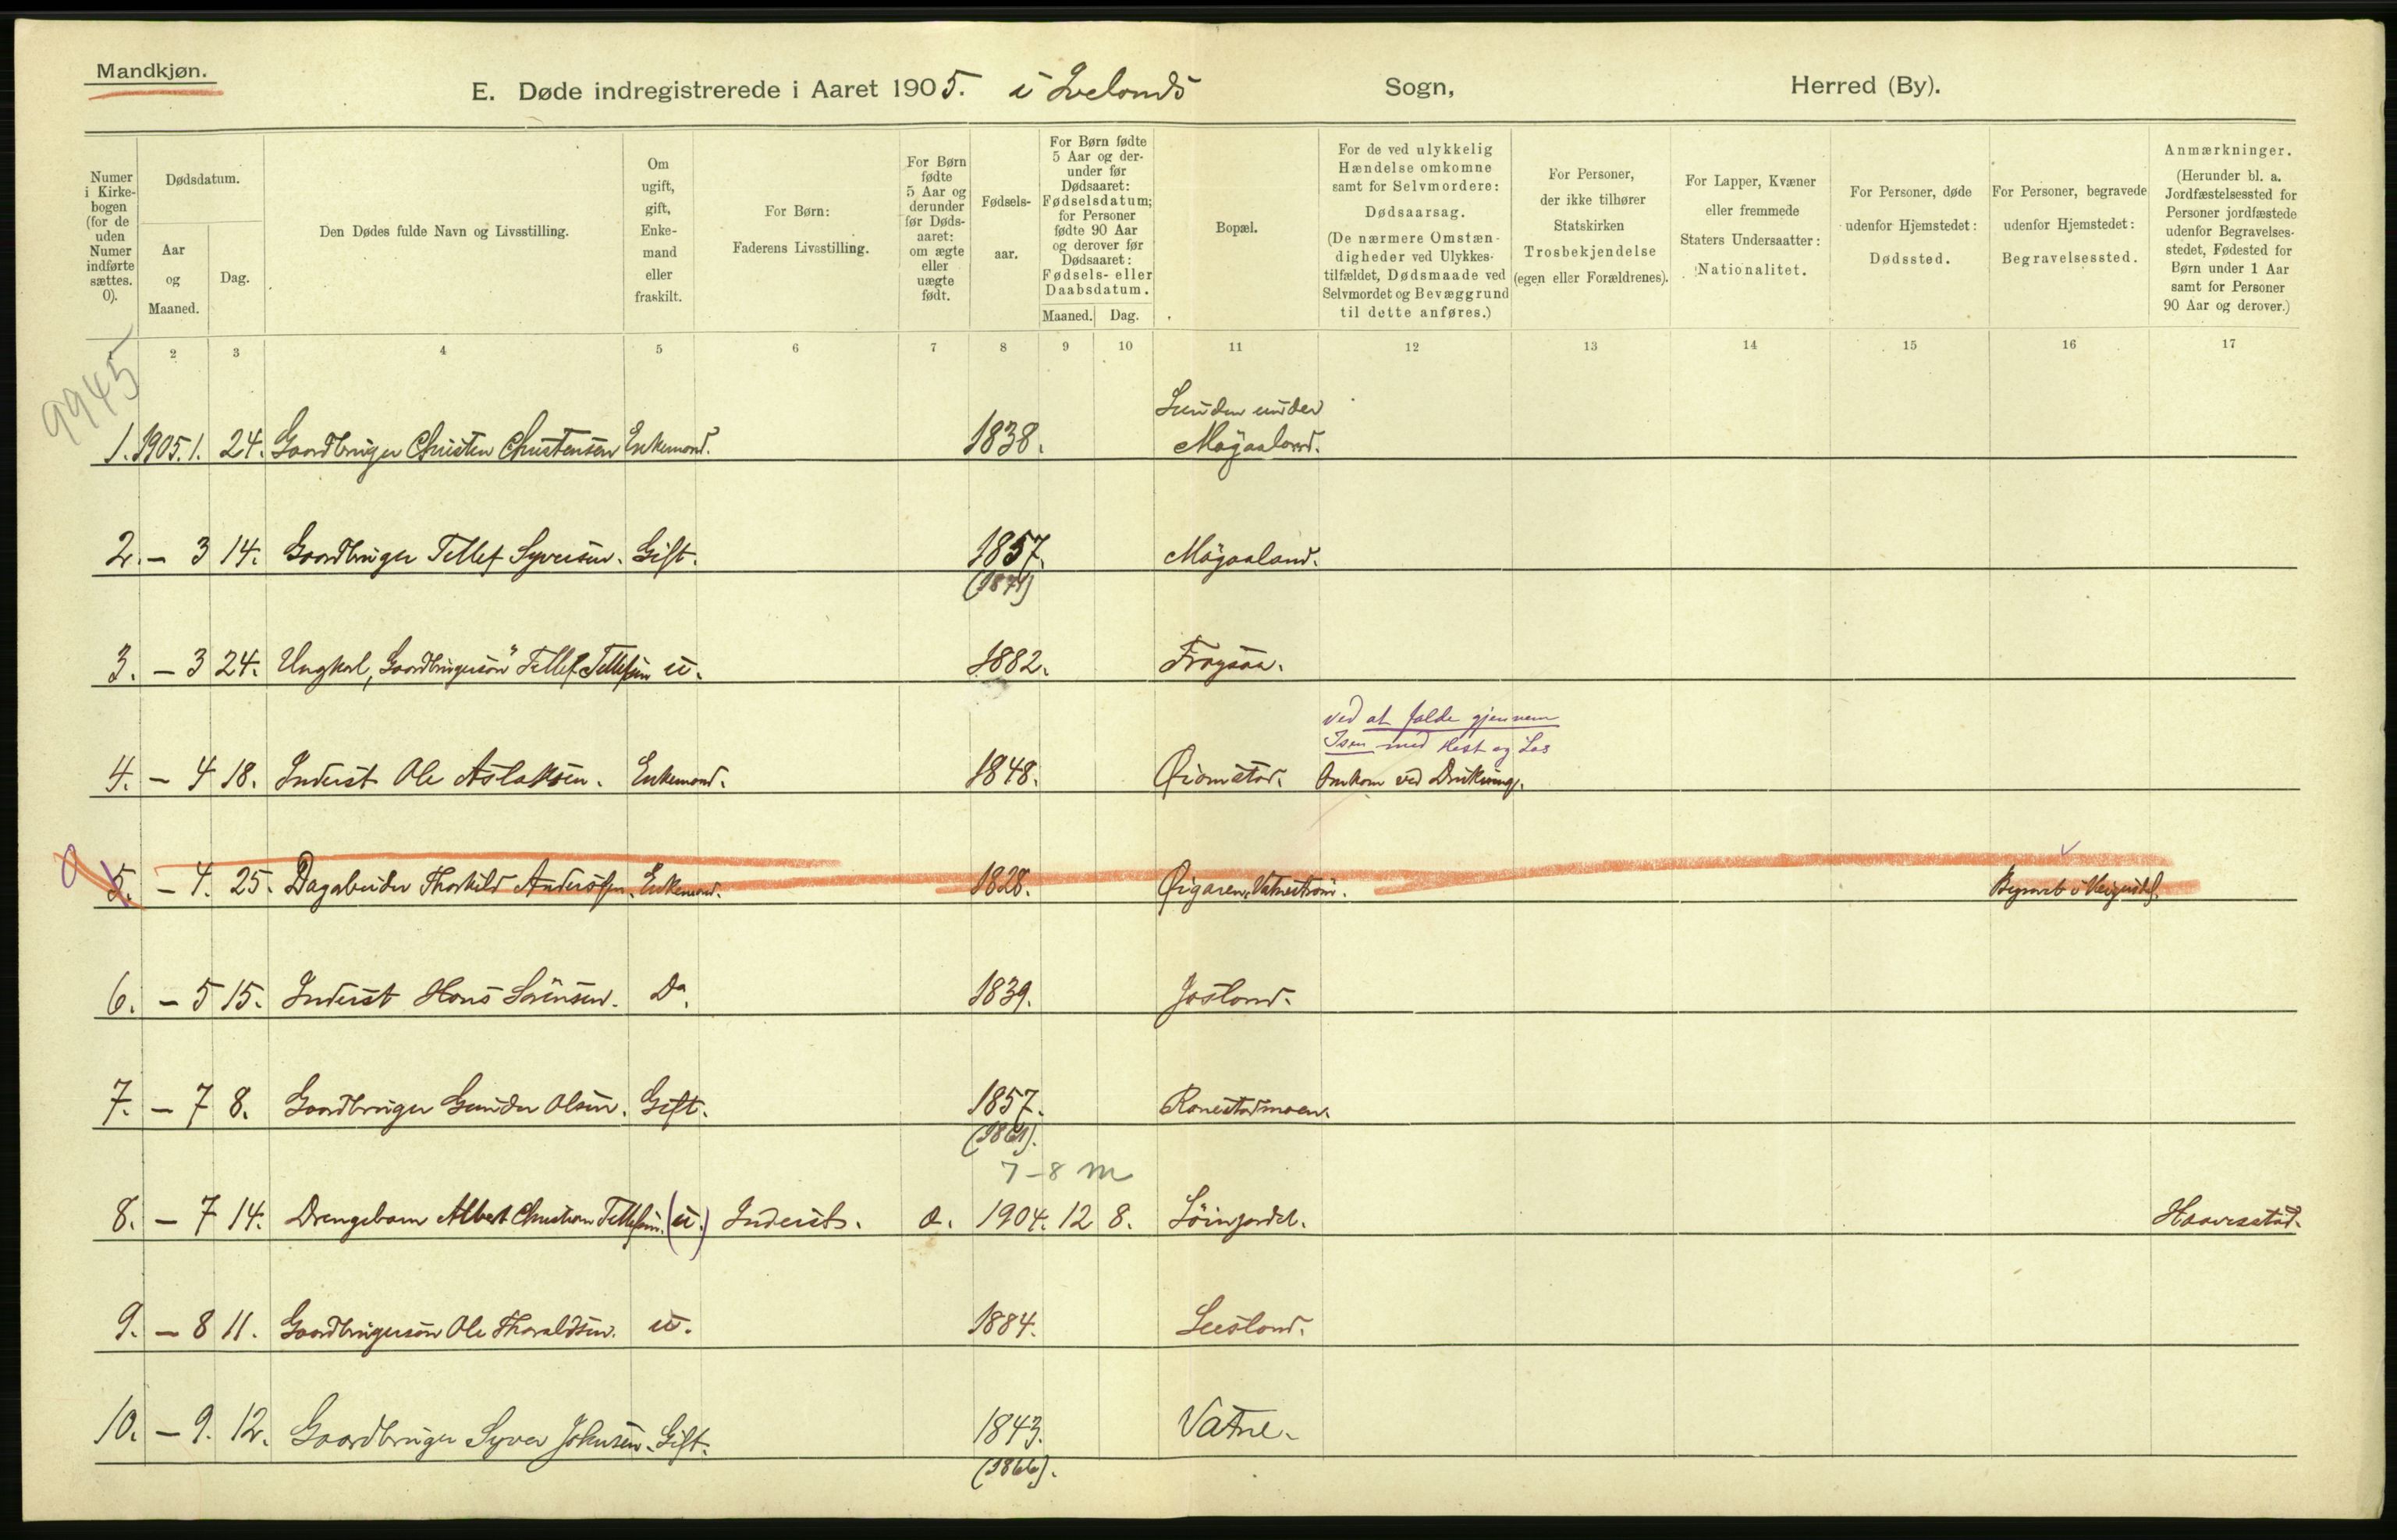 Mandkjøn.
E. Døde indregistrerede i Aaret 1905. i Ivelands Sogn, Herred (By).
Numer i Kirkebogen (for de uden Numer indførte sættes. 0).
Dødsdatum.
Aar og Maaned.
Dag.
Den Dødes fulde Navn og Livsstilling.
Om ugift, gift, Enkemand eller fraskilt.
For Børn: Faderens Livsstilling.
For Børn fødte 5 Aar og derunder før Dødsaaret: om ægte eller uægte født.
Fødselsaar.
For Børn fødte 5 Aar og derunder før Dødsaaret: Fødselsdatum; for Personer fødte 90 Aar og derover før Dødsaaret: Fødsels- eller Daabsdatum.
Maaned. Dag.
Bopæl.
For de ved ulykkelig Hændelse omkomne samt for Selvmordere: Dødsaarsag. (De nærmere Omstændigheder ved Ulykkestilfældet, Dødsmaade ved Selvmordet og Bevæggrund til dette anføres.)
For Personer, der ikke tilhører Statskirken Trosbekjendelse (egen eller Forældrenes).
For Lapper, Kvæner eller fremmede Staters Undersaatter: Nationalitet.
For Personer, døde udenfor Hjemstedet: Dødssted.
For Personer, begravede udenfor Hjemstedet: Begravelsessted.
Anmærkninger. (Herunder bl. a. Jordfæstelsessted for Personer jordfæstede udenfor Begravelsesstedet, Fødested for Børn under 1 Aar samt for Personer 90 Aar og derover.)
2 3 4 5 6 7 8 9 10 11 12 13 14 15 16 17
9945
Lunden under
1. 1905. 1. 24. Gaardbruger Christen Christensen Enkemand. 1838. Møgaaland.
2. — 3 14. Gaardbruger Tellef Syversen. Gift. 1857. Møgaaland.
(1871)
3. — 3 24. Ungkarl, "Gaardbrugersøn" Tellef Tellefsen u. 1882. Frøysaa.
ved at falde gjennem
Isen med Hest og Læs
4. — 4 18. Inderst Ole Aslaksen. Enkemand. 1848. Omkom ved Drukning.
0
5. — 4. 25. Dagarbeider Thorkild Andersen. Enkemand. 1828. Vatnestrøm. Begravet i Vegusdal.
6. — 5 15. Inderst Hans Sørensen. Do. 1839. Jortland.
7. — 7 8. Gaardbruger Gunder Olsen. Gift. 1857. Ranestadmoen.
(1861).
7-8 m
8. — 7 14. Drengebarn Albert Christian Tellefsen. (u.) Inderst. æ. 1904. 12 8. Haaverstad.
9. — 8 11. Gaardbrugersøn Ole Thoraldsen. u. 1884. Lisland.
10. — 9. 12. Gaardbruger Syver Johnsen. Gift. 1843. Vatne.
(1866).